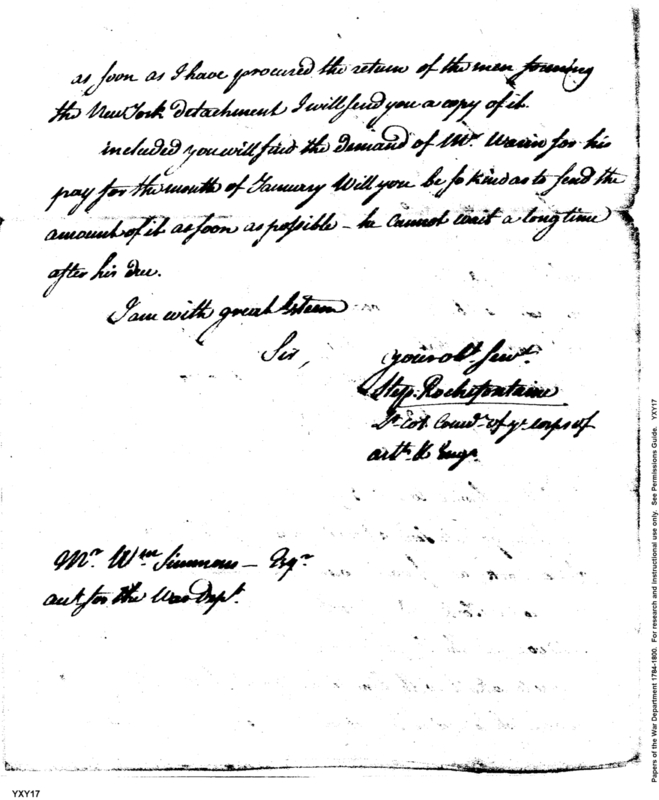 as soon as I have procured the return of the men forming
the New York detachment I will send you a copy of it.
included you will find the demand of Mr. Warin for his
pay for the month of January Will you be so kind as to send the
amount of it as soon as possible – he Cannot wait a long time
after his due.
I am with great Esteem
Sir,
your obt. Servt.
Step. Rochefontaine
Lt. Col. Comd. of ye corps of
arty. & Engs.
Mr. Wm. Simmons – Esqr.
act. for the War Dept.
YXY17
Papers of the War Department 1784-1800. For research and instructional use only. See Permissions Guide. YXY17